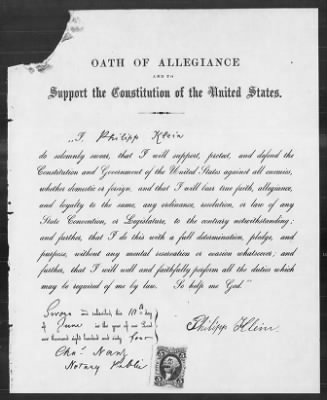 OATH OF ALLEGIANCE
AND TO
Support the Constitution of the United States.
„I, Philipp Klein
do solemnly swear, that I will support, protect, and defend the
Constitution and Government of the United States against all enemies,
whether domestic or foreign, and that I will bear true faith, allegiance,
and loyalty to the same, any ordinance, resolution, or law of any
State Convention, or Legislature, to the contrary notwithstanding;
and further, that I do this with a full determination, pledge, and
purpose, without any mental reservation or evasion whatsoever; and
further, that I will well and faithfully perform all the duties which
may be required of me by law. So help me God."
Sworn and subscribed, this 10th day
of June in the year of our Lord
one thousand eight hundred and sixty four
Philipp Klein
Chas. 
Notary Public